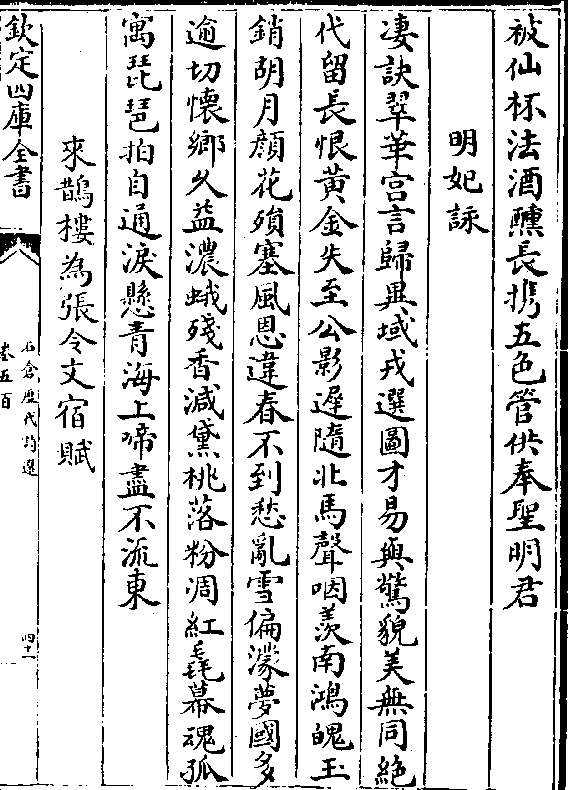 被仙杯法酒醺長携五色管供奉聖明君
明妃詠
凄訣翠華宫言歸異域戎選圖才易與驚貌美無同絶
代留長恨黄金失至公影遲隨北馬聲咽羨南鴻魄玉
銷胡月顔花殞塞風恩違春不到愁亂雪偏濛夢國多
逾切懷鄉久益濃蛾殘香減黛桃落粉凋紅毳幕魂孤
寓琵琶拍自通淚懸青海上啼盡不流東
來鵲樓為張令文宿賦
欽定四庫全書
石倉歷代詩選
卷五百
四十一